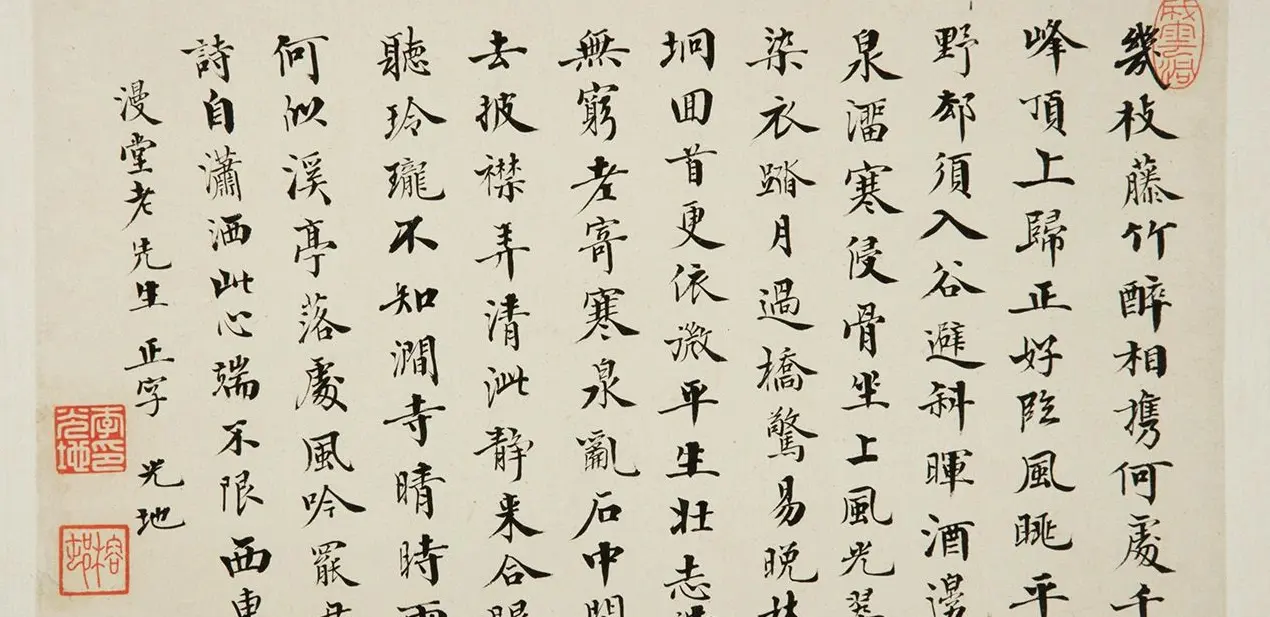 幾枝藤竹醉相攜何處千
峰頂上歸正好臨風眺平
野却須入谷避斜暉酒邊
泉溜寒侵骨坐上風光翠
染衣踏月過橋驚易晚
坰回首更依微平生壯志
無窮老寄寒泉亂石中閒
去披襟弄清泚靜來合眼
聽玲瓏不知澗寺晴時雨
何似溪亭落處風吟罷
詩自瀟洒此心端不限西東
漫堂老先生正字 光地
李光地印
榕村